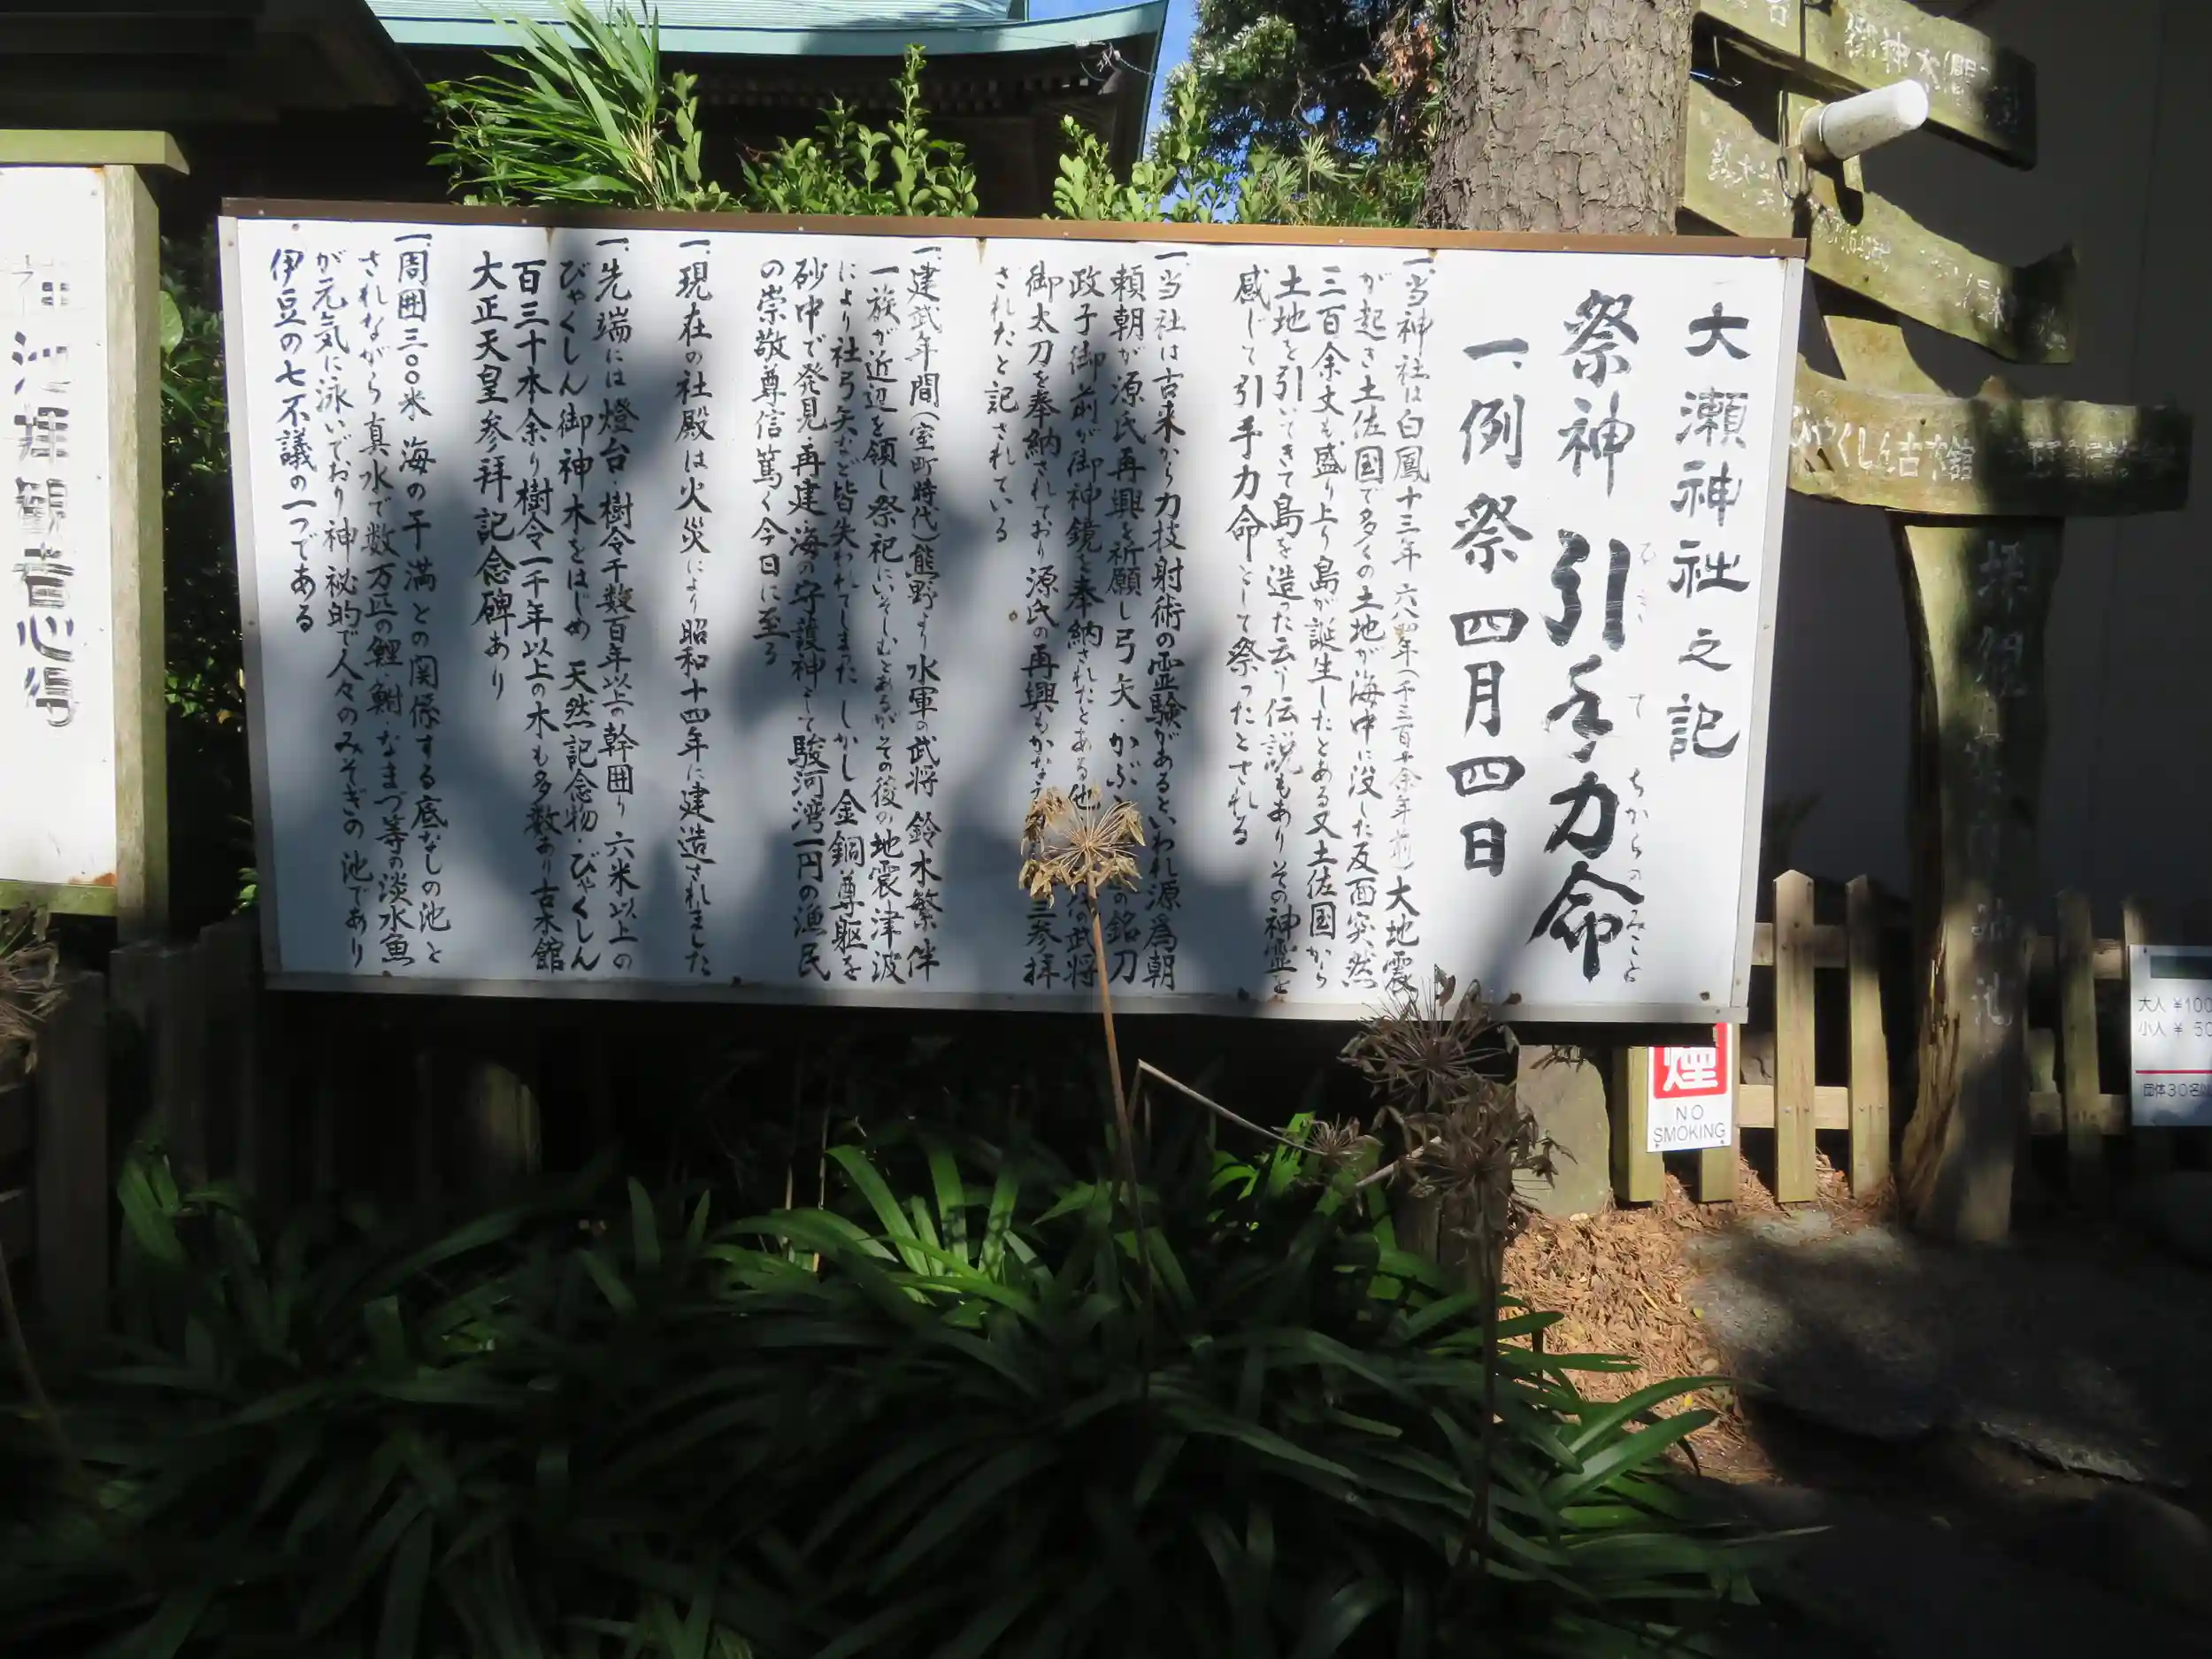 大瀬神社之記
祭神 引手力命
ひき て ちからの みこと
一、例祭 四月四日
一、当神社は白鳳十三年 六八四年(千三百十余年前)大地震
が起き土佐国で多くの土地が海中に没した反面突然
三百余丈も盛り上り島が誕生したとある又土佐国から
土地を引いてきて島を造った云う伝説もありその神霊を
感じて引手力命として祭ったとされる
一、当社は古来から力技射術の霊験があるといわれ源為朝
頼朝が源氏再興を祈願し弓矢・かぶ の銘刀
政子御前が御神鏡を奉納されたとある他 の武将
御太刀を奉納されており源氏の再興もかな 三参拝
されたと記されている
一、建武年間(室町時代)熊野より水軍の武将 鈴木繁伴
一族が近辺を領し祭祀にいそしむとあるがその後の地震津波
により社弓矢など皆失われてしまった しかし金銅尊躯を
砂中で発見 再建 海の守護神として駿河湾一円の漁民
の崇敬尊信篤く今日に至る
一、現在の社殿は火災により昭和十四年に建造されました
一、先端には燈台・樹令千数百年以上の幹囲り 六米以上の
びゃくしん御神木をはじめ 天然記念物・びゃくしん
百三十本余り樹令一千年以上の木も多数あり古木館
大正天皇参拝記念碑あり
一、周囲三〇〇米 海の干満との関係する底なしの池と
されながら真水で数万匹の鯉・鮒・なまづ等の淡水魚
が元気に泳いでおり神秘的で人々のみそぎの池であり
伊豆の七不議の一つである
神池拝観者心得
御神木
鈴木
びゃくしん古木館
煙
NO
SMOKING
大人 ¥100
小人 ¥ 50
団体30名